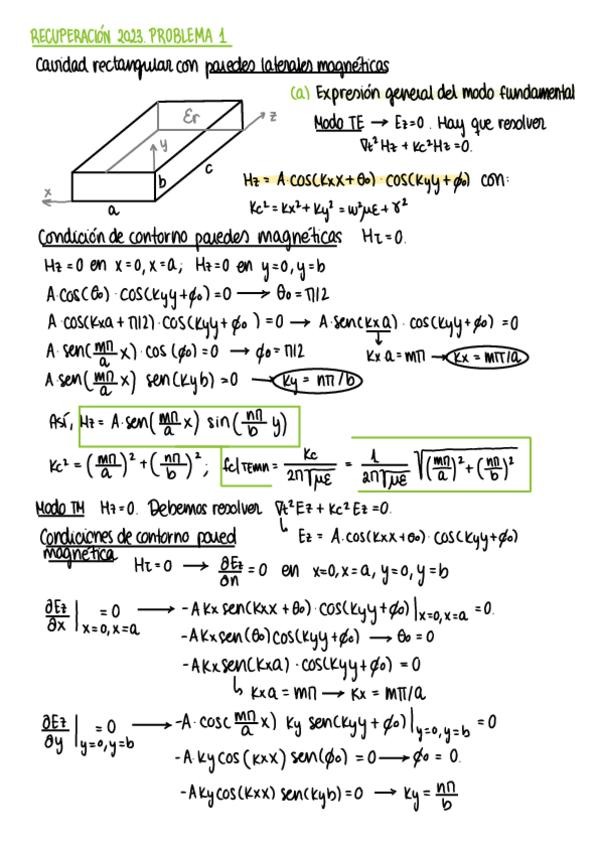 RECUPERACIÓN 2023. PROBLEMA 1
Cavidad rectangular con paredes laterales magnéticas
(a) Expresión general del modo fundamental
Modo TE → Ez=0. Hay que resolver
∇t²Hz + Kc²Hz = 0.
Er
z
y
x
a
b
c
Hz = A·cos(Kxx+θo)·cos(Kyy+ϕo) con:
Kc² = Kx² + Ky² = ω²με + γ²
Condición de contorno paredes magnéticas Hτ = 0.
Hz = 0 en x=0, x=a; Hz=0 en y=0, y=b
A·cos(θo)·cos(Kyy+ϕo)=0 → θo = π/2
A·cos(Kxa + π/2)·cos(Kyy+ϕo)=0 → A·sen(Kxa)·cos(Kyy+ϕo)=0
Kxa = mπ → Kx = mπ/a
A·sen(mπ/a x)·cos(ϕo)=0 → ϕo = π/2
A sen(mπ/a x) sen(Kyb)=0 → Ky = nπ/b
Así, Hz = A·sen(mπ/a x) sin(nπ/b y)
Kc² = (mπ/a)² + (nπ/b)²; fc|TEmn = Kc/2π√με = 1/2π√με √(mπ/a)² + (nπ/b)²
Modo TM Hz=0. Debemos resolver ∇t²Ez + Kc²Ez = 0.
↳ Ez = A·cos(Kxx+θo)·cos(Kyy+ϕo)
Condiciones de contorno pared
magnética Hτ = 0 → ∂Ez/∂n = 0 en x=0, x=a, y=0, y=b
∂Ez/∂x |x=0, x=a = 0 → -AKx sen(Kxx+θo)·cos(Kyy+ϕo)|x=0, x=a = 0.
-AKxsen(θo)cos(Kyy+ϕo) → θo = 0
-AKxsen(Kxa)·cos(Kyy+ϕo) = 0
↳ Kxa = mπ → Kx = mπ/a
∂Ez/∂y |y=0, y=b = 0 → -A·cos(mπ/a x) Ky sen(Kyy+ϕo)|y=0, y=b = 0
-A·Ky cos(Kxx) sen(ϕo) = 0 → ϕo = 0.
-AKycos(Kxx) sen(Kyb)=0 → Ky = nπ/b